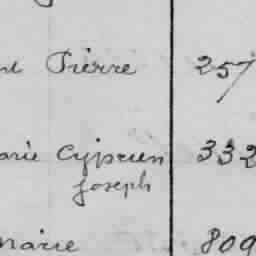 Pierre 257
arie Cyprien 332
Joseph
marie 809